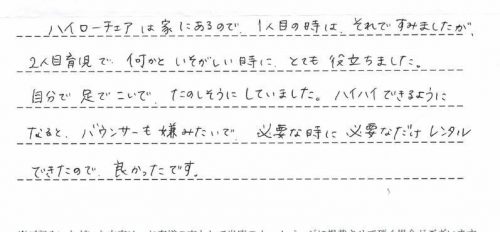 ハイローチェアは家にあるので、1人目の時は、それですみましたが、
2人目育児で、何かといそがしい時に、とても役立ちました。
自分で足でこいで、たのしそうにしていました。ハイハイできるように
なると、バウンサーも嫌みたいで、必要な時に必要なだけレンタル
できたので、良かったです。